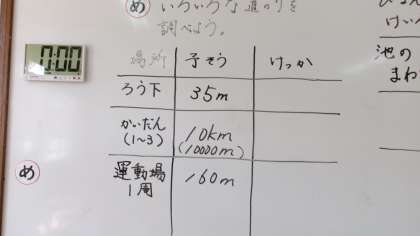 め いろいろな道のりを
調べよう。
7:00
場所 予そう けっか
ろう下 35m
かいだん
(1~3) 10km
(10000m)
運動場
1周 160m
め
けい
池の
まわ